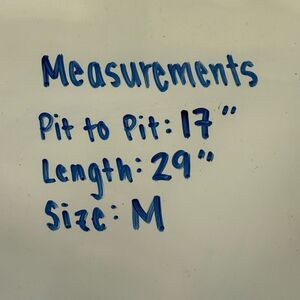 Measurements
Pit to Pit: 17"
Length: 29"
Size: M